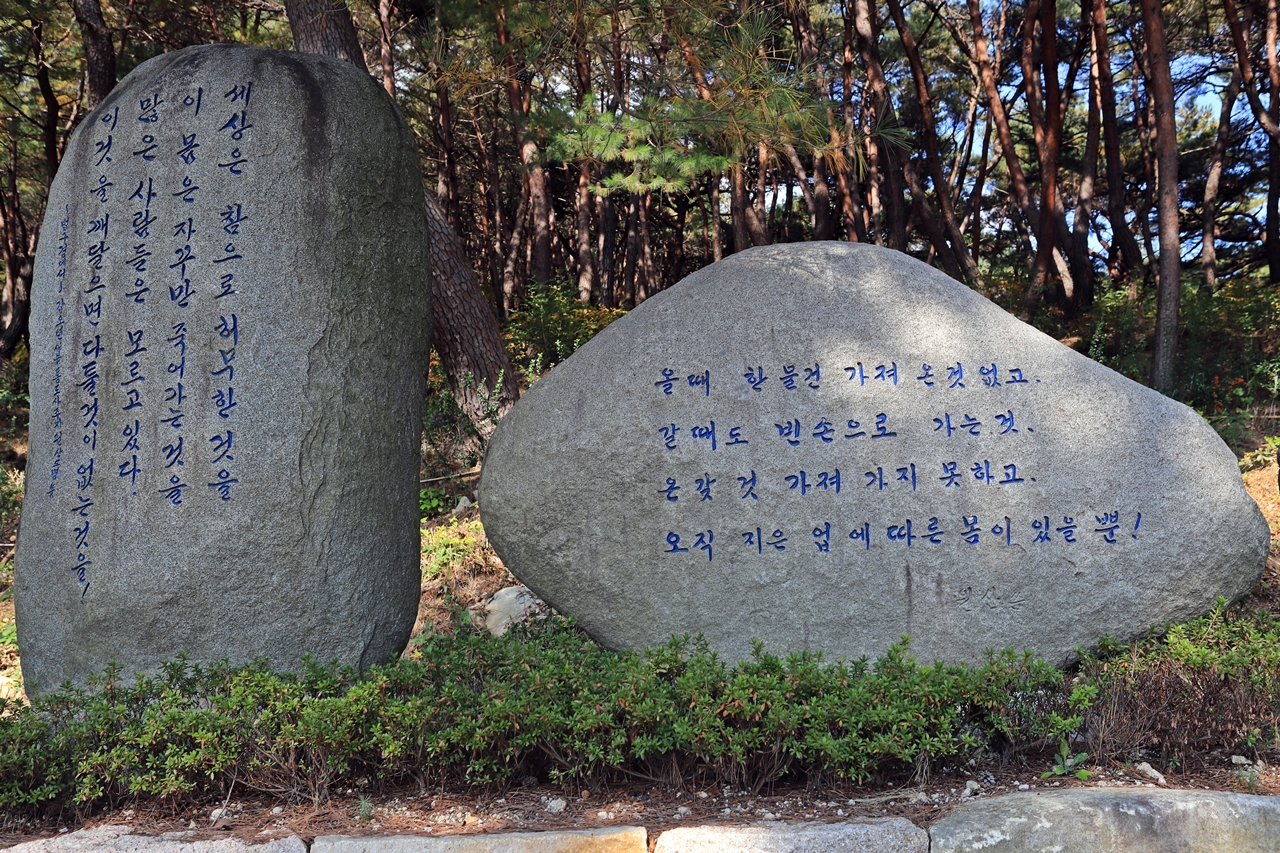 세상은 참으로 허무한 것을
이 몸은 자꾸만 죽어가는 것을
많은 사람들은 모르고 있다.
이것을 깨달으면 다툴것이 없는것을!
올때 한 물건 가져 온것 없고.
갈때도 빈손으로 가는것.
온갖 것 가져 가지 못하고.
오직 지은 업에 따른 몸이 있을 뿐!